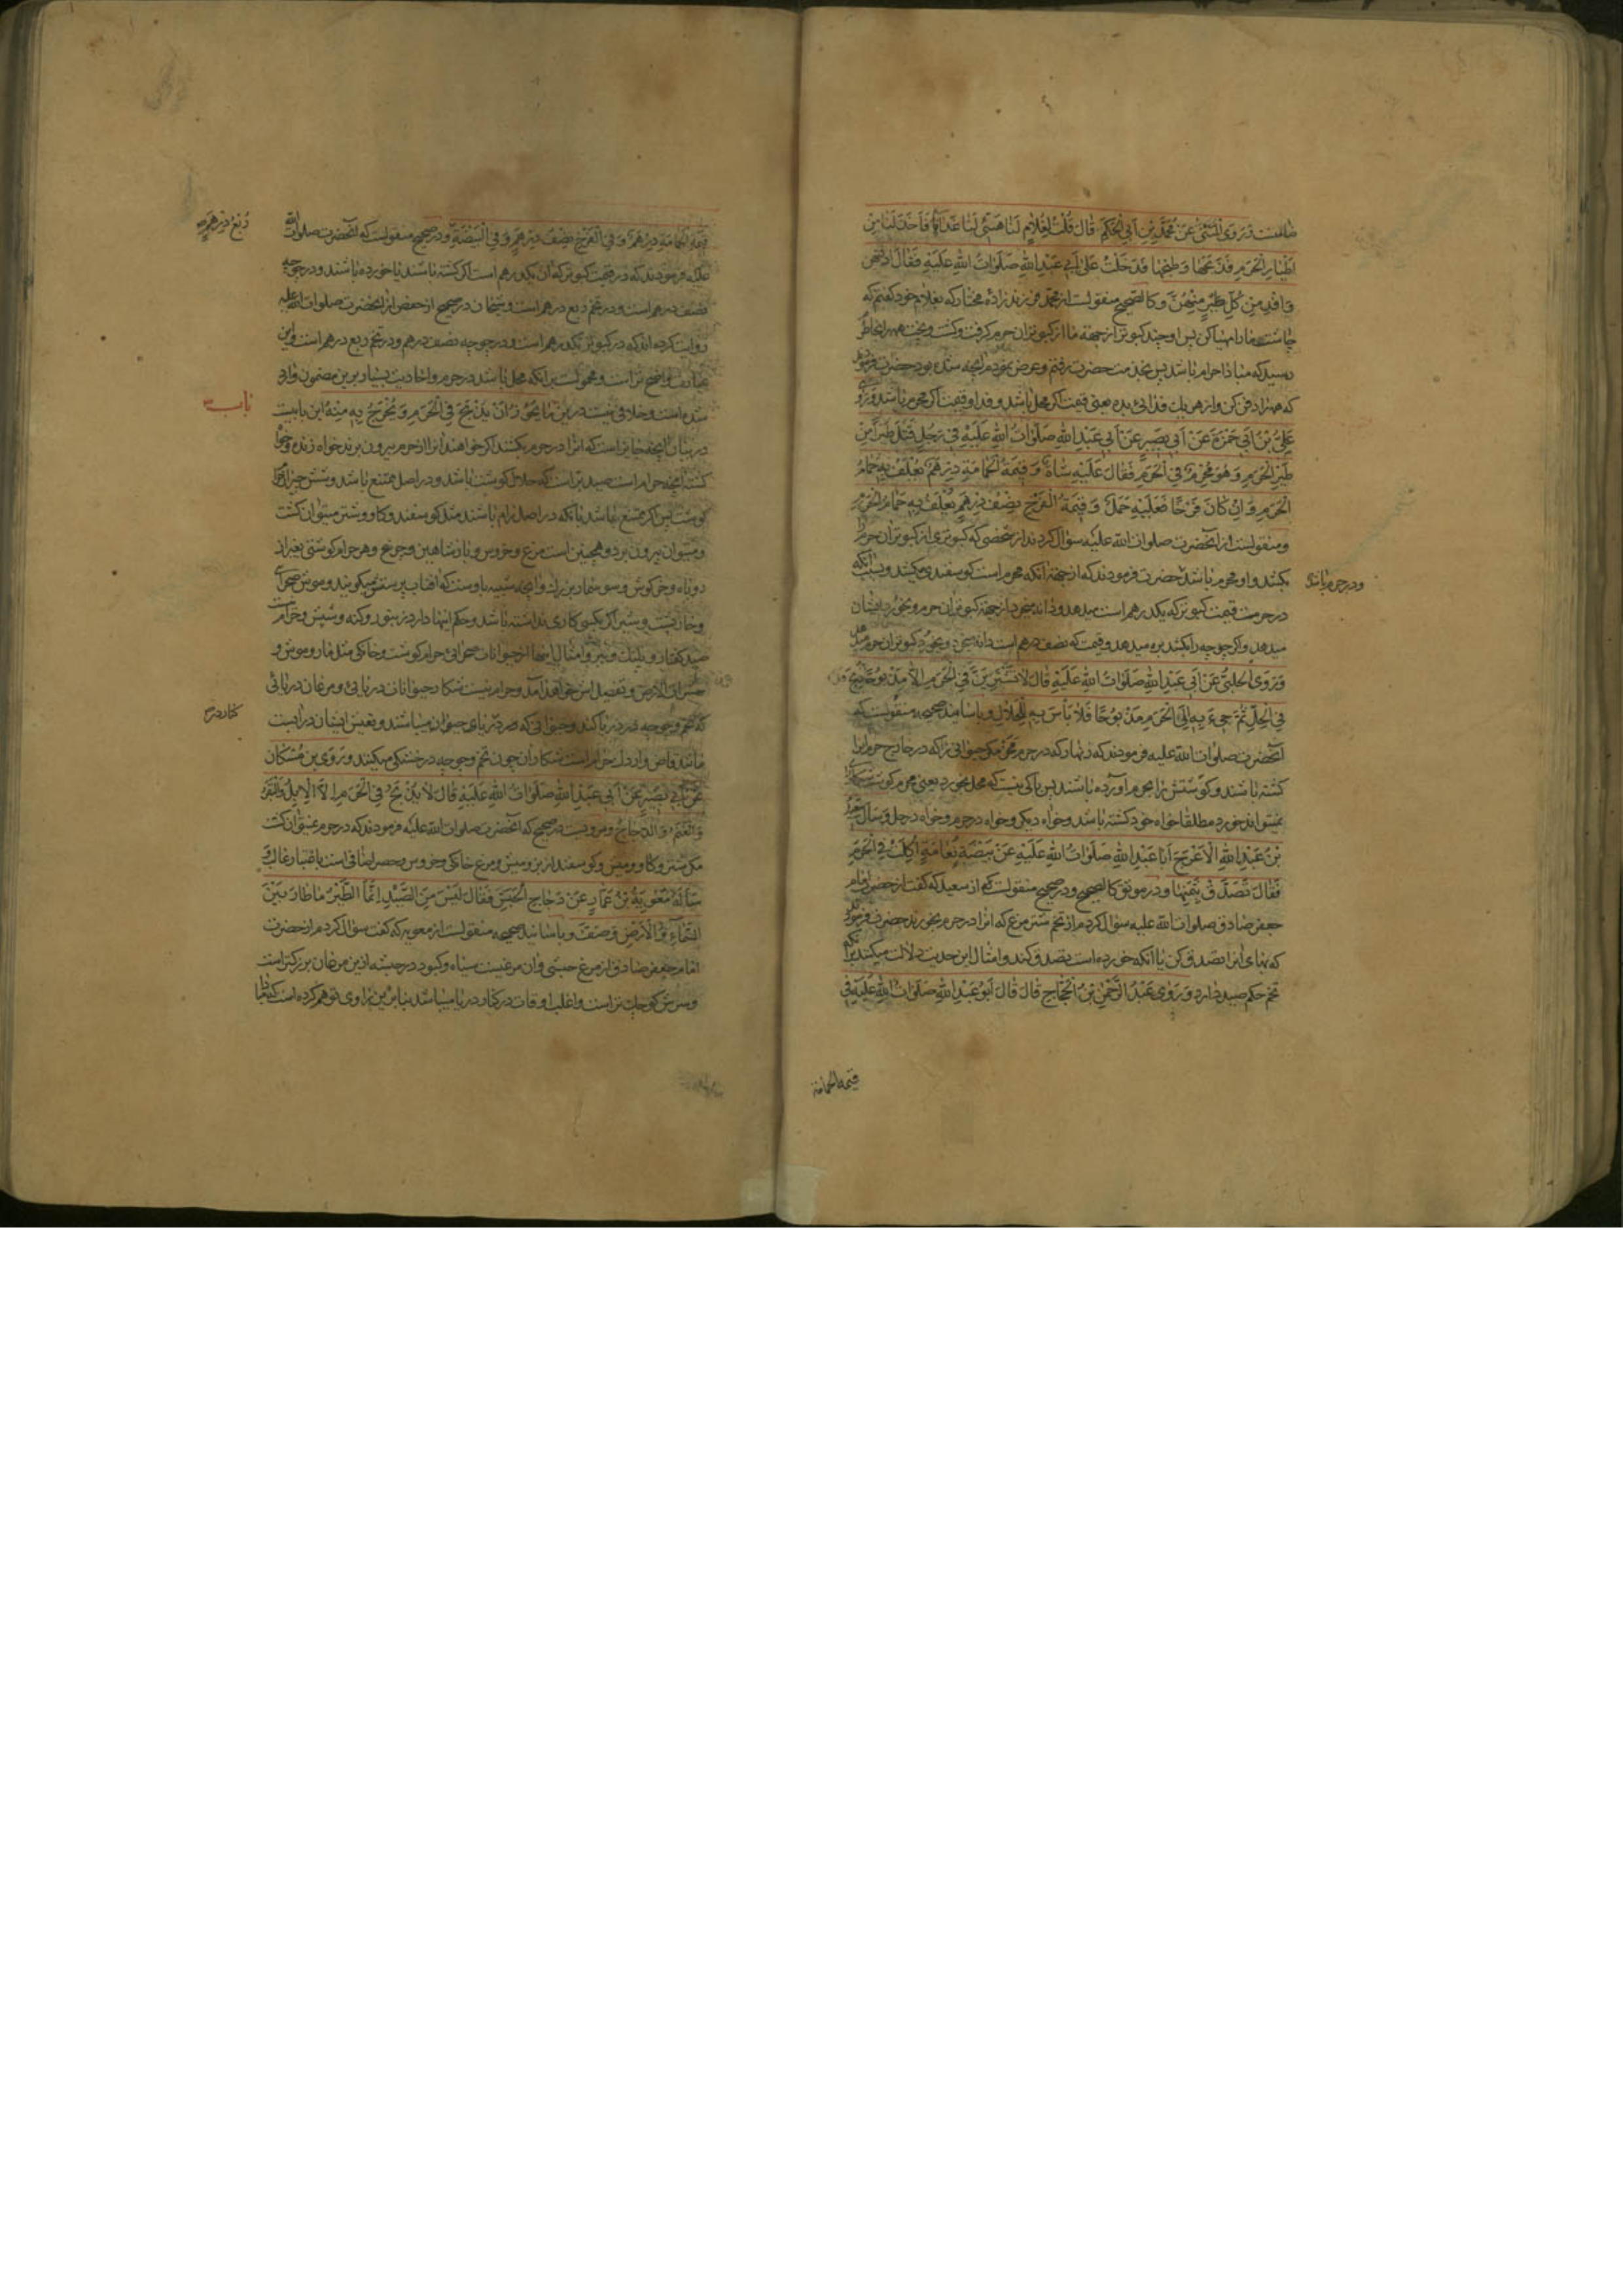 ضامنست وَرَوَی الْمُثَنّٰی عَنْ مُحَمَّدِ بْنِ اَبِی الْحَکَمِ قَالَ قُلْتُ لِغُلَامٍ لَنَا هَیِّئْ لَنَا غَدَاءَنَا فَاَخَذَ لَنَا مِنْ
اَطْیَارِ الْحَرَمِ فَذَبَحَهَا وَطَبَخَهَا فَدَخَلْتُ عَلٰی اَبِی عَبْدِ اللهِ صَلَوَاتُ اللهِ عَلَیْهِ فَقَالَ ادْفِنْهُنَّ
وَافْدِ مِنْ کُلِّ طَیْرٍ مِنْهُنَّ وکالصحیح منقولست از محمد که بغلام خود گفتم که
چاشت ما را مهیا کن پس او چند کبوتر از جهة ما از کبوتران حرم گرفت و کشت و پخت
رسید که مبادا حرام باشد پس بخدمت حضرت رفتم و عرض نمودم آنچه شده بود حضرت فرمود
که همه را دفن کن و از هر یک فدائی بده یعنی قیمت اگر محل باشد و فدا و قیمت اگر محرم باشد وَرَوٰی
عَلِیُّ بْنُ اَبِی حَمْزَةَ عَنْ اَبِی بَصِیرٍ عَنْ اَبِی عَبْدِ اللهِ صَلَوَاتُ اللهِ عَلَیْهِ فِی رَجُلٍ قَتَلَ طَیْرًا مِنْ
طَیْرِ الْحَرَمِ وَهُوَ مُحْرِمٌ فِی الْحَرَمِ فَقَالَ عَلَیْهِ شَاةٌ وَقِیمَةُ الْحَمَامَةِ دِرْهَمٌ یُعْلَفُ بِهِ حَمَامُ
الْحَرَمِ وَاِنْ کَانَ فَرْخًا فَعَلَیْهِ حَمَلٌ وَقِیمَةُ الْفَرْخِ نِصْفُ دِرْهَمٍ یُعْلَفُ بِهِ حَمَامُ الْحَرَمِ
و منقولست از آنحضرت صلوات الله علیه سؤال کردند از شخصی که کبوتری از کبوتران حرم را
بکشد و او محرم باشد حضرت فرمودند که از جهة آنکه محرم است گوسفندی میکشد و بسبب آنکه
ودر حرم باشد
در حرمست قیمت کبوتر که یکدرهم است میدهد و دانه میخرد از جهة کبوتران حرم و بخورد ایشان
میدهد و اگر چوجه را بکشد بره میدهد و قیمت که نصف درهم است دانه میخرد و بخورد کبوتران حرم میدهد
وَرَوَی الْحَلَبِیُّ عَنْ اَبِی عَبْدِ اللهِ صَلَوَاتُ اللهِ عَلَیْهِ قَالَ لَا تَشْتَرِیَنَّ فِی الْحَرَمِ اِلَّا مَذْبُوحًا ذُبِحَ
فِی الْحِلِّ ثُمَّ جِیءَ بِهِ اِلَی الْحَرَمِ مَذْبُوحًا فَلَا بَأْسَ بِهِ لِلْحَلَالِ و باسانید صحیحه منقولست که
آنحضرت صلوات الله علیه فرمودند که زنهار که در حرم مخر مگر حیوانی را که در خارج حرم آنرا
کشته باشند و گوشتش را بحرم آورده باشند پس باکی نیست که محل بخورد یعنی محرم گوشت شکار
نمیتواند خورد مطلقا خواه خود کشته باشد و خواه دیگری و خواه در حرم و خواه در حل وَسَأَلَ سَعِیدُ
بْنُ عَبْدِ اللهِ الْاَعْرَجُ اَبَا عَبْدِ اللهِ صَلَوَاتُ اللهِ عَلَیْهِ عَنْ بَیْضَةِ نَعَامَةٍ اُکِلَتْ فِی الْحَرَمِ
فَقَالَ تَصَدَّقْ بِثَمَنِهَا و در موثق کالصحیح و در صحیح منقولست که از سعید که گفت از حضرت امام
جعفر صادق صلوات الله علیه سؤال کردم از تخم شتر مرغ که آنرا در حرم بخورند حضرت فرمود
که بهای آنرا تصدق کن یا آنکه خورده است تصدق کند و امثال این حدیث دلالت میکند بر آنکه
تخم حکم صید دارد وَرَوٰی عَبْدُ الرَّحْمٰنِ بْنُ الْحَجَّاجِ قَالَ قَالَ اَبُو عَبْدِ اللهِ صَلَوَاتُ اللهِ عَلَیْهِ فِی
قیمة الحمامة
قِیمَةِ الْحَمَامَةِ دِرْهَمٌ وَفِی الْفَرْخِ نِصْفُ دِرْهَمٍ وَفِی الْبَیْضَةِ و در صحیح منقولست که آنحضرت صلوات الله
رُبْعُ دِرْهَمٍ
علیه فرمودند که در قیمت کبوتر که آن یکدرهم است اگر کشته باشند یا خورده باشند و در چوجه
نصف درهم است و در تخم ربع درهم است و شیخان در صحیح از حفص از آنحضرت صلوات الله علیه
روایت کرده اند که در کبوتر یکدرهم است و در چوجه نصف درهم و در تخم ربع درهم است و این
عبارت واضح تر است و محمولست بر آنکه محل باشد در حرم و احادیث بسیار برین مضمون وارد
شده است و خلافی نیست درین مَا یَجُوزُ اَنْ یُذْبَحَ فِی الْحَرَمِ وَیُخْرَجَ بِهِ مِنْهُ این بابیست
باب
در بیان آنچه جایز است که آنرا در حرم بکشند اگر خواهند آنرا از حرم بیرون برند خواه زنده و خواه
کشته آنچه حرام است صید بریست که حلال گوشت باشد و در اصل ممتنع باشد و شش حیوان
گوشت پس اگر ممتنع نباشد بآنکه در اصل رام باشند مثل گوسفند و گاو و شتر میتوان کشت
و میتوان بیرون برد و همچنین است مرغ و خروس و باز و شاهین و چرغ و هر حرام گوشتی بغیر از
روباه و خرگوش و سوسمار بزرگ و آنچه شبیه باوست که آفتاب پرستش میگویند و موش صحرای
و خارپشت و شیر اگر بکسی کاری نداشته باشد و حکم اینها دارد زنبور و کنه و شپش و حرام نیست
صید کفتار و پلنگ و ببر و امثال اینها از حیوانات صحرائی حرام گوشت و خانگی مثل مار و موش و
حشرات الارض و تفصیل اش خواهد آمد و حرام نیست شکار حیوانات دریائی و مرغان دریائی
که تخم و چوجه در دریا کند و حیوانی که در دریای حیوان میباشند و تعیش ایشان در آبست
کنار در
مانند قاض و اردک حرام است شکار آن چون تخم و چوجه در خشکی میکنند وَرَوَی بن مُسْکَانَ
عَنْ اَبِی بَصِیرٍ عَنْ اَبِی عَبْدِ اللهِ صَلَوَاتُ اللهِ عَلَیْهِ قَالَ لَا یُذْبَحُ فِی الْحَرَمِ اِلَّا الْاِبِلُ وَالْبَقَرُ
وَالْغَنَمُ وَالدَّجَاجُ و مرویست در صحیح که آنحضرت صلوات الله علیه فرمودند که در حرم نمیتوان کشت
مگر شتر و گاو و میش و گوسفند از بز و میش و مرغ خانگی و خروس و حصر اضافی است باعتبار غالب وَ
سَأَلَهُ مُعٰوِیَةُ بْنُ عَمَّارٍ عَنْ دَجَاجِ الْحَبَشِ فَقَالَ لَیْسَ مِنَ الصَّیْدِ اِنَّمَا الطَّیْرُ مَا طَارَ بَیْنَ
السَّمَاءِ وَالْاَرْضِ وَصَفَّ و باسانید صحیحه منقولست از معویه که گفت سؤال کردم از حضرت
امام جعفر صادق از مرغ حبشی و آن مرغیست سیاه و کبود در حبشه ازین مرغان بزرگتر است
و سرش کوچک تر است و اغلب اوقات در کنار دریا میباشد بنابرین راوی توهم کرده است که